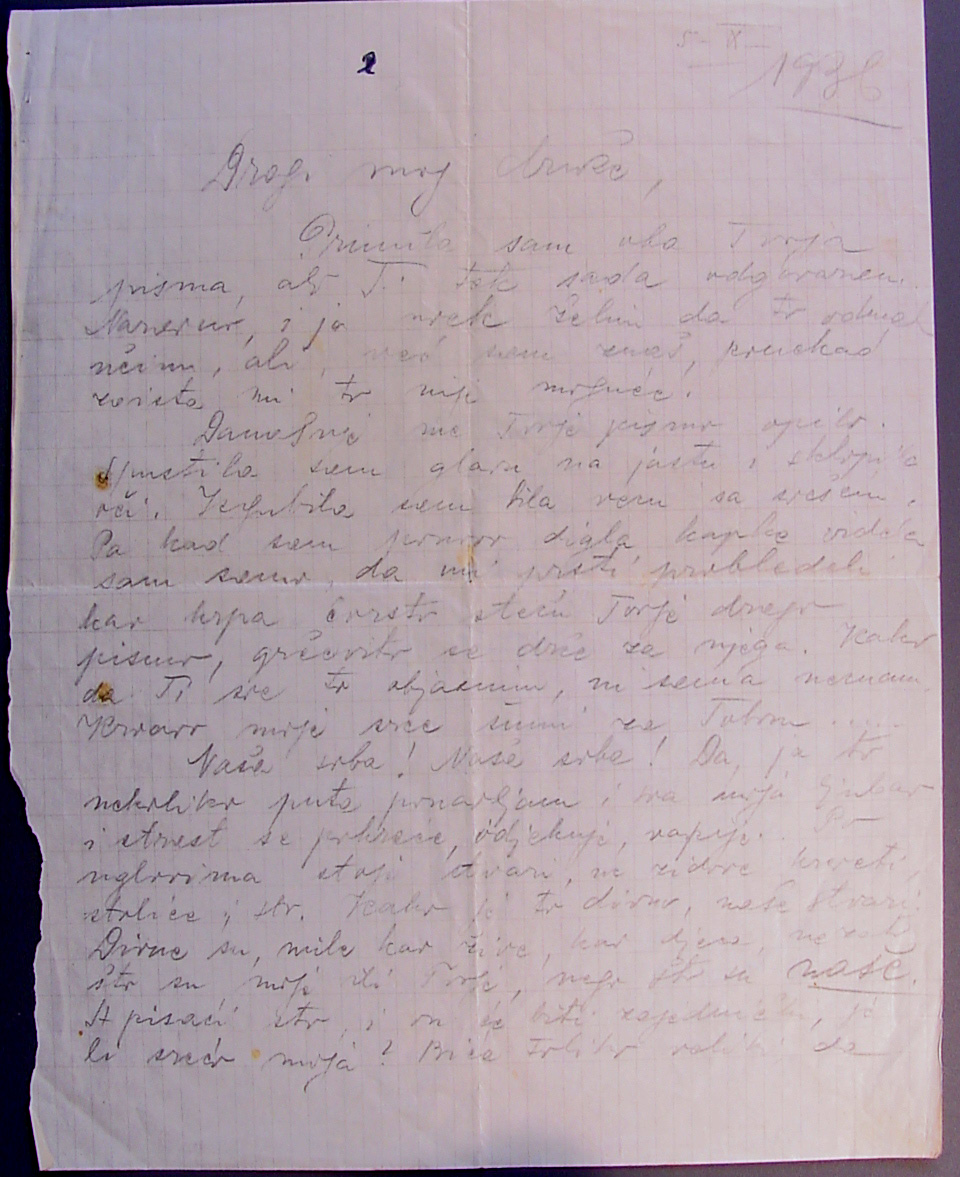 2
5 - X -
1936
Dragi moj druže,
Primila sam oba Tvoja
pisma, ali Ti tek sada odgovaram.
Naravno, i ja uvek želim da to odmah
učinim, ali, već sam znaš, ponekad
zaista mi to nije moguće.
Današnje me Tvoje pismo opilo.
Spustila sam glavu na jastu i sklopila
oči. Izgubila sam bila vezu sa svešću.
Pa kad sam ponovo digla kapke videla
sam samo, da mi prsti probledeli
kao krpa čvrsto stežu Tvoje drago
pismo, grčevito se drže za njega. Kako
da Ti sve to objasnim, ni sama neznam.
Krvavo moje srce šumi za Tobom ....
Naša soba! Naša soba! Da, ja to
nekoliko puta ponavljam i sva moja ljubav
i strast se pokreće, odjekuje, vapije. Po
uglovima stoje stvari, uz zidove kreveti,
stolice i sto. Kako je to divno, naše stvari.
Divne su, mile kao žive, kao djeca, ne zato
što su moje ili Tvoje, nego što su naše.
A pisaći sto, i on će biti zajednički, je
li srećo moja? Biće toliko veliki da